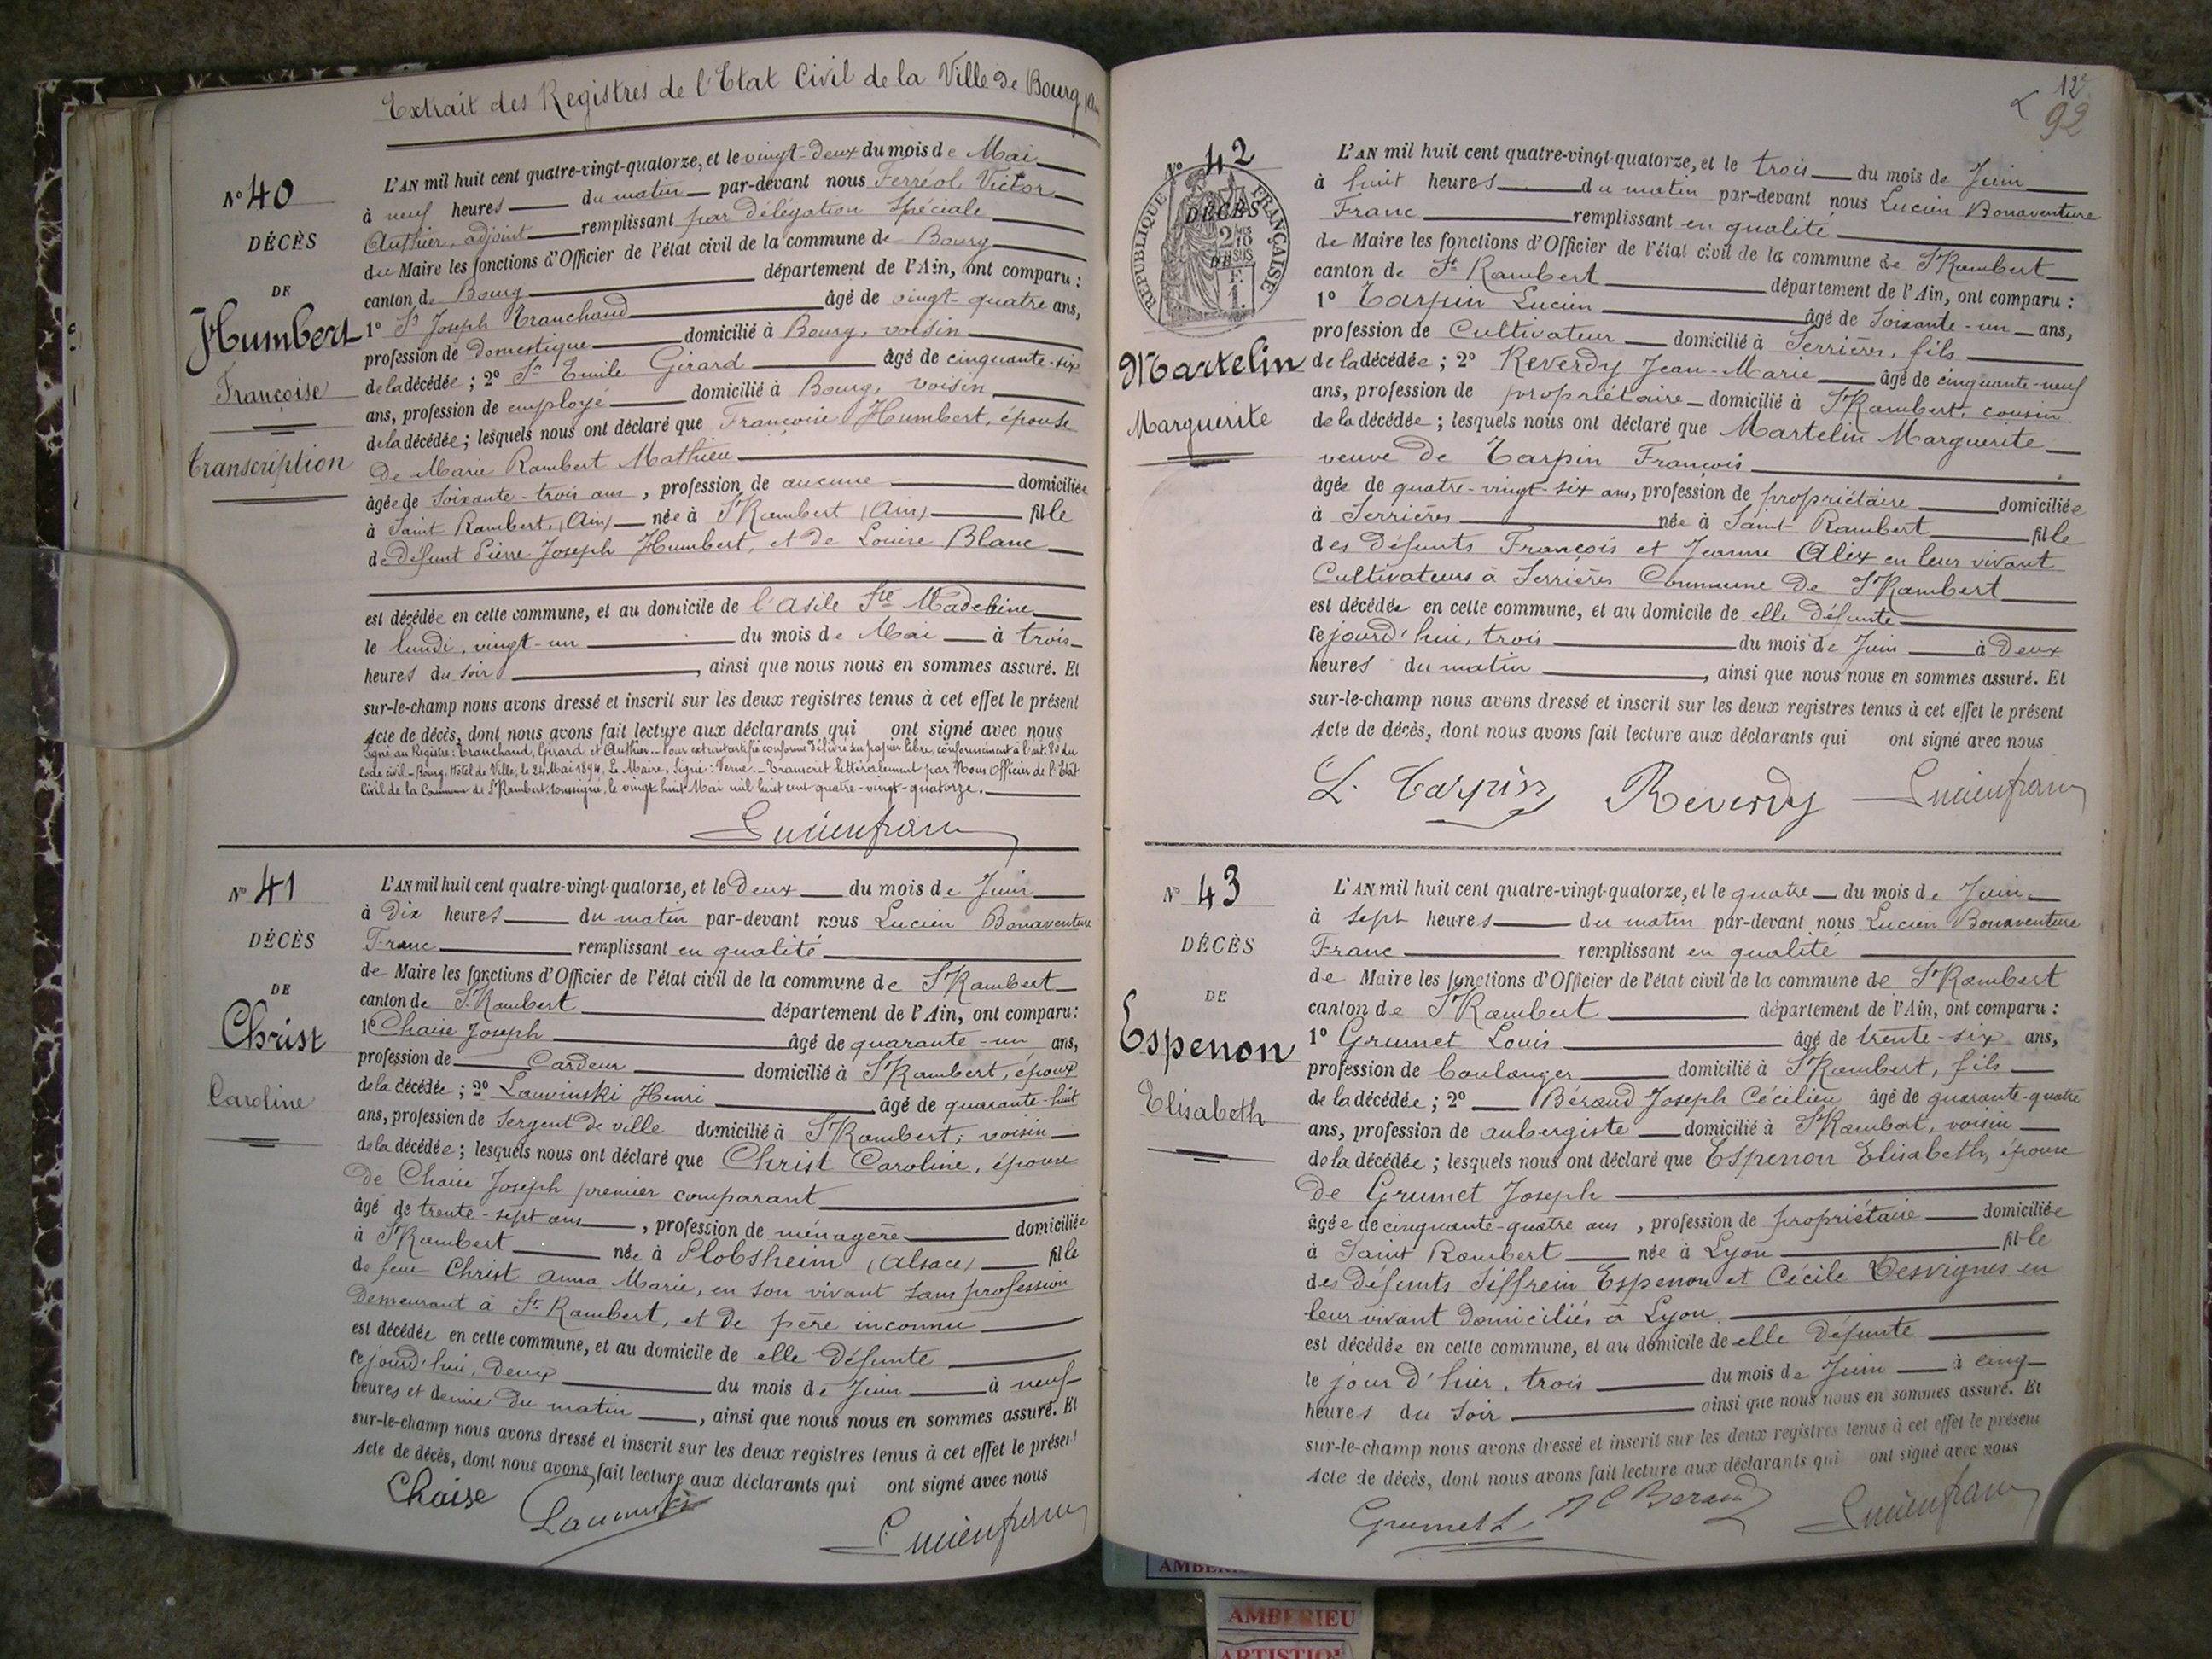 Extrait des Registres de l'Etat Civil de la Ville de Bourg
N° 40
DÉCÈS
DE
Humbert
Françoise
Transcription
L'AN mil huit cent quatre-vingt-quatorze, et le vingt-deux du mois de Mai
à neuf heures du matin par-devant nous Ferréol Victor
Authier, adjoint remplissant par délégation spéciale
du Maire les fonctions d'Officier de l'état civil de la commune de Bourg
canton de Bourg département de l'Ain, ont comparu :
1° Sr Joseph Tranchand âgé de vingt-quatre ans,
profession de Domestique domicilié à Bourg, voisin
de la décédée ; 2° Sr Emile Girard âgé de cinquante-six
ans, profession de employé domicilié à Bourg, voisin
de la décédée ; lesquels nous ont déclaré que Françoise Humbert, épouse
de Marie Rambert Mathieu
âgée de soixante-trois ans, profession de aucune domiciliée
à Saint Rambert, (Ain) née à St Rambert (Ain) fille
de défunt Pierre Joseph Humbert, et de Louise Blanc
est décédée en cette commune, et au domicile de l'asile Ste Madeleine
le lundi, vingt-un du mois de Mai à trois
heures du soir, ainsi que nous nous en sommes assuré. Et
sur-le-champ nous avons dressé et inscrit sur les deux registres tenus à cet effet le présent
Acte de décès, dont nous avons fait lecture aux déclarants qui ont signé avec nous
Signé au Registre : Tranchand, Girard et Authier. Pour extrait certifié conforme délivré sur papier libre, conformément à l'art. 80 du
Code civil - Bourg, Hôtel de Ville, le 24 Mai 1894, Le Maire, Signé : Verne. - Transcrit littéralement par Nous Officier de l'Etat
Civil de la Commune de St Rambert, soussigné, le vingt huit Mai mil huit cent quatre-vingt-quatorze.
Lucien franc
N° 41
DÉCÈS
DE
Christ
Caroline
L'AN mil huit cent quatre-vingt-quatorze, et le deux du mois de Juin
à dix heures du matin par-devant nous Lucien Bonaventure
Franc remplissant en qualité
de Maire les fonctions d'Officier de l'état civil de la commune de St Rambert
canton de St Rambert département de l'Ain, ont comparu :
1° Chaise Joseph âgé de quarante-un ans,
profession de Cardeur domicilié à St Rambert, époux
de la décédée ; 2° Lauvinski Henri âgé de quarante-huit
ans, profession de Sergent de ville domicilié à St Rambert, voisin
de la décédée ; lesquels nous ont déclaré que Christ Caroline, épouse
de Chaise Joseph premier comparant
âgé de trente-sept ans, profession de ménagère domiciliée
à St Rambert née à Plobsheim (Alsace) fille
de feue Christ Anna Marie, en son vivant sans profession
demeurant à St Rambert, et de père inconnu
est décédée en cette commune, et au domicile de elle défunte
ce jourd'hui, deux du mois de Juin à neuf
heures et demie du matin, ainsi que nous nous en sommes assuré. Et
sur-le-champ nous avons dressé et inscrit sur les deux registres tenus à cet effet le présent
Acte de décès, dont nous avons fait lecture aux déclarants qui ont signé avec nous
Chaise Lauvinski Lucien franc
12e
92
N° 42
RÉPUBLIQUE FRANÇAISE
DÉCÈS
DE
Martelin
Marguerite
L'AN mil huit cent quatre-vingt-quatorze, et le trois du mois de Juin
à huit heures du matin par-devant nous Lucien Bonaventure
Franc remplissant en qualité
de Maire les fonctions d'Officier de l'état civil de la commune de St Rambert
canton de St Rambert département de l'Ain, ont comparu :
1° Tarpin Lucien âgé de soixante-un ans,
profession de Cultivateur domicilié à Serrières, fils
de la décédée ; 2° Reverdy Jean-Marie âgé de cinquante-neuf
ans, profession de propriétaire domicilié à St Rambert, cousin
de la décédée ; lesquels nous ont déclaré que Martelin Marguerite
veuve de Tarpin François
âgée de quatre-vingt-six ans, profession de propriétaire domiciliée
à Serrières née à Saint Rambert fille
des défunts François et Jeanne Alix en leur vivant
Cultivateurs à Serrières Commune de St Rambert
est décédée en cette commune, et au domicile de elle défunte
ce jourd'hui, trois du mois de Juin à deux
heures du matin, ainsi que nous nous en sommes assuré. Et
sur-le-champ nous avons dressé et inscrit sur les deux registres tenus à cet effet le présent
Acte de décès, dont nous avons fait lecture aux déclarants qui ont signé avec nous
L. Tarpin Reverdy Lucien franc
N° 43
DÉCÈS
DE
Espenon
Elisabeth
L'AN mil huit cent quatre-vingt-quatorze, et le quatre du mois de Juin
à sept heures du matin par-devant nous Lucien Bonaventure
Franc remplissant en qualité
de Maire les fonctions d'Officier de l'état civil de la commune de St Rambert
canton de St Rambert département de l'Ain, ont comparu :
1° Grumet Louis âgé de trente-six ans,
profession de boulanger domicilié à St Rambert, fils
de la décédée ; 2° Béraud Joseph Cécilien âgé de quarante-quatre
ans, profession de aubergiste domicilié à St Rambert, voisin
de la décédée ; lesquels nous ont déclaré que Espenon Elisabeth, épouse
de Grumet Joseph
âgée de cinquante-quatre ans, profession de propriétaire domiciliée
à Saint Rambert née à Lyon fille
des défunts Siffrein Espenon et Cécile Desvignes en
leur vivant domiciliés à Lyon
est décédée en cette commune, et au domicile de elle défunte
le jour d'hier, trois du mois de Juin à cinq
heures du soir ainsi que nous nous en sommes assuré. Et
sur-le-champ nous avons dressé et inscrit sur les deux registres tenus à cet effet le présent
Acte de décès, dont nous avons fait lecture aux déclarants qui ont signé avec nous
Grumet L. J C Beraud Lucien franc
AMBERIEU